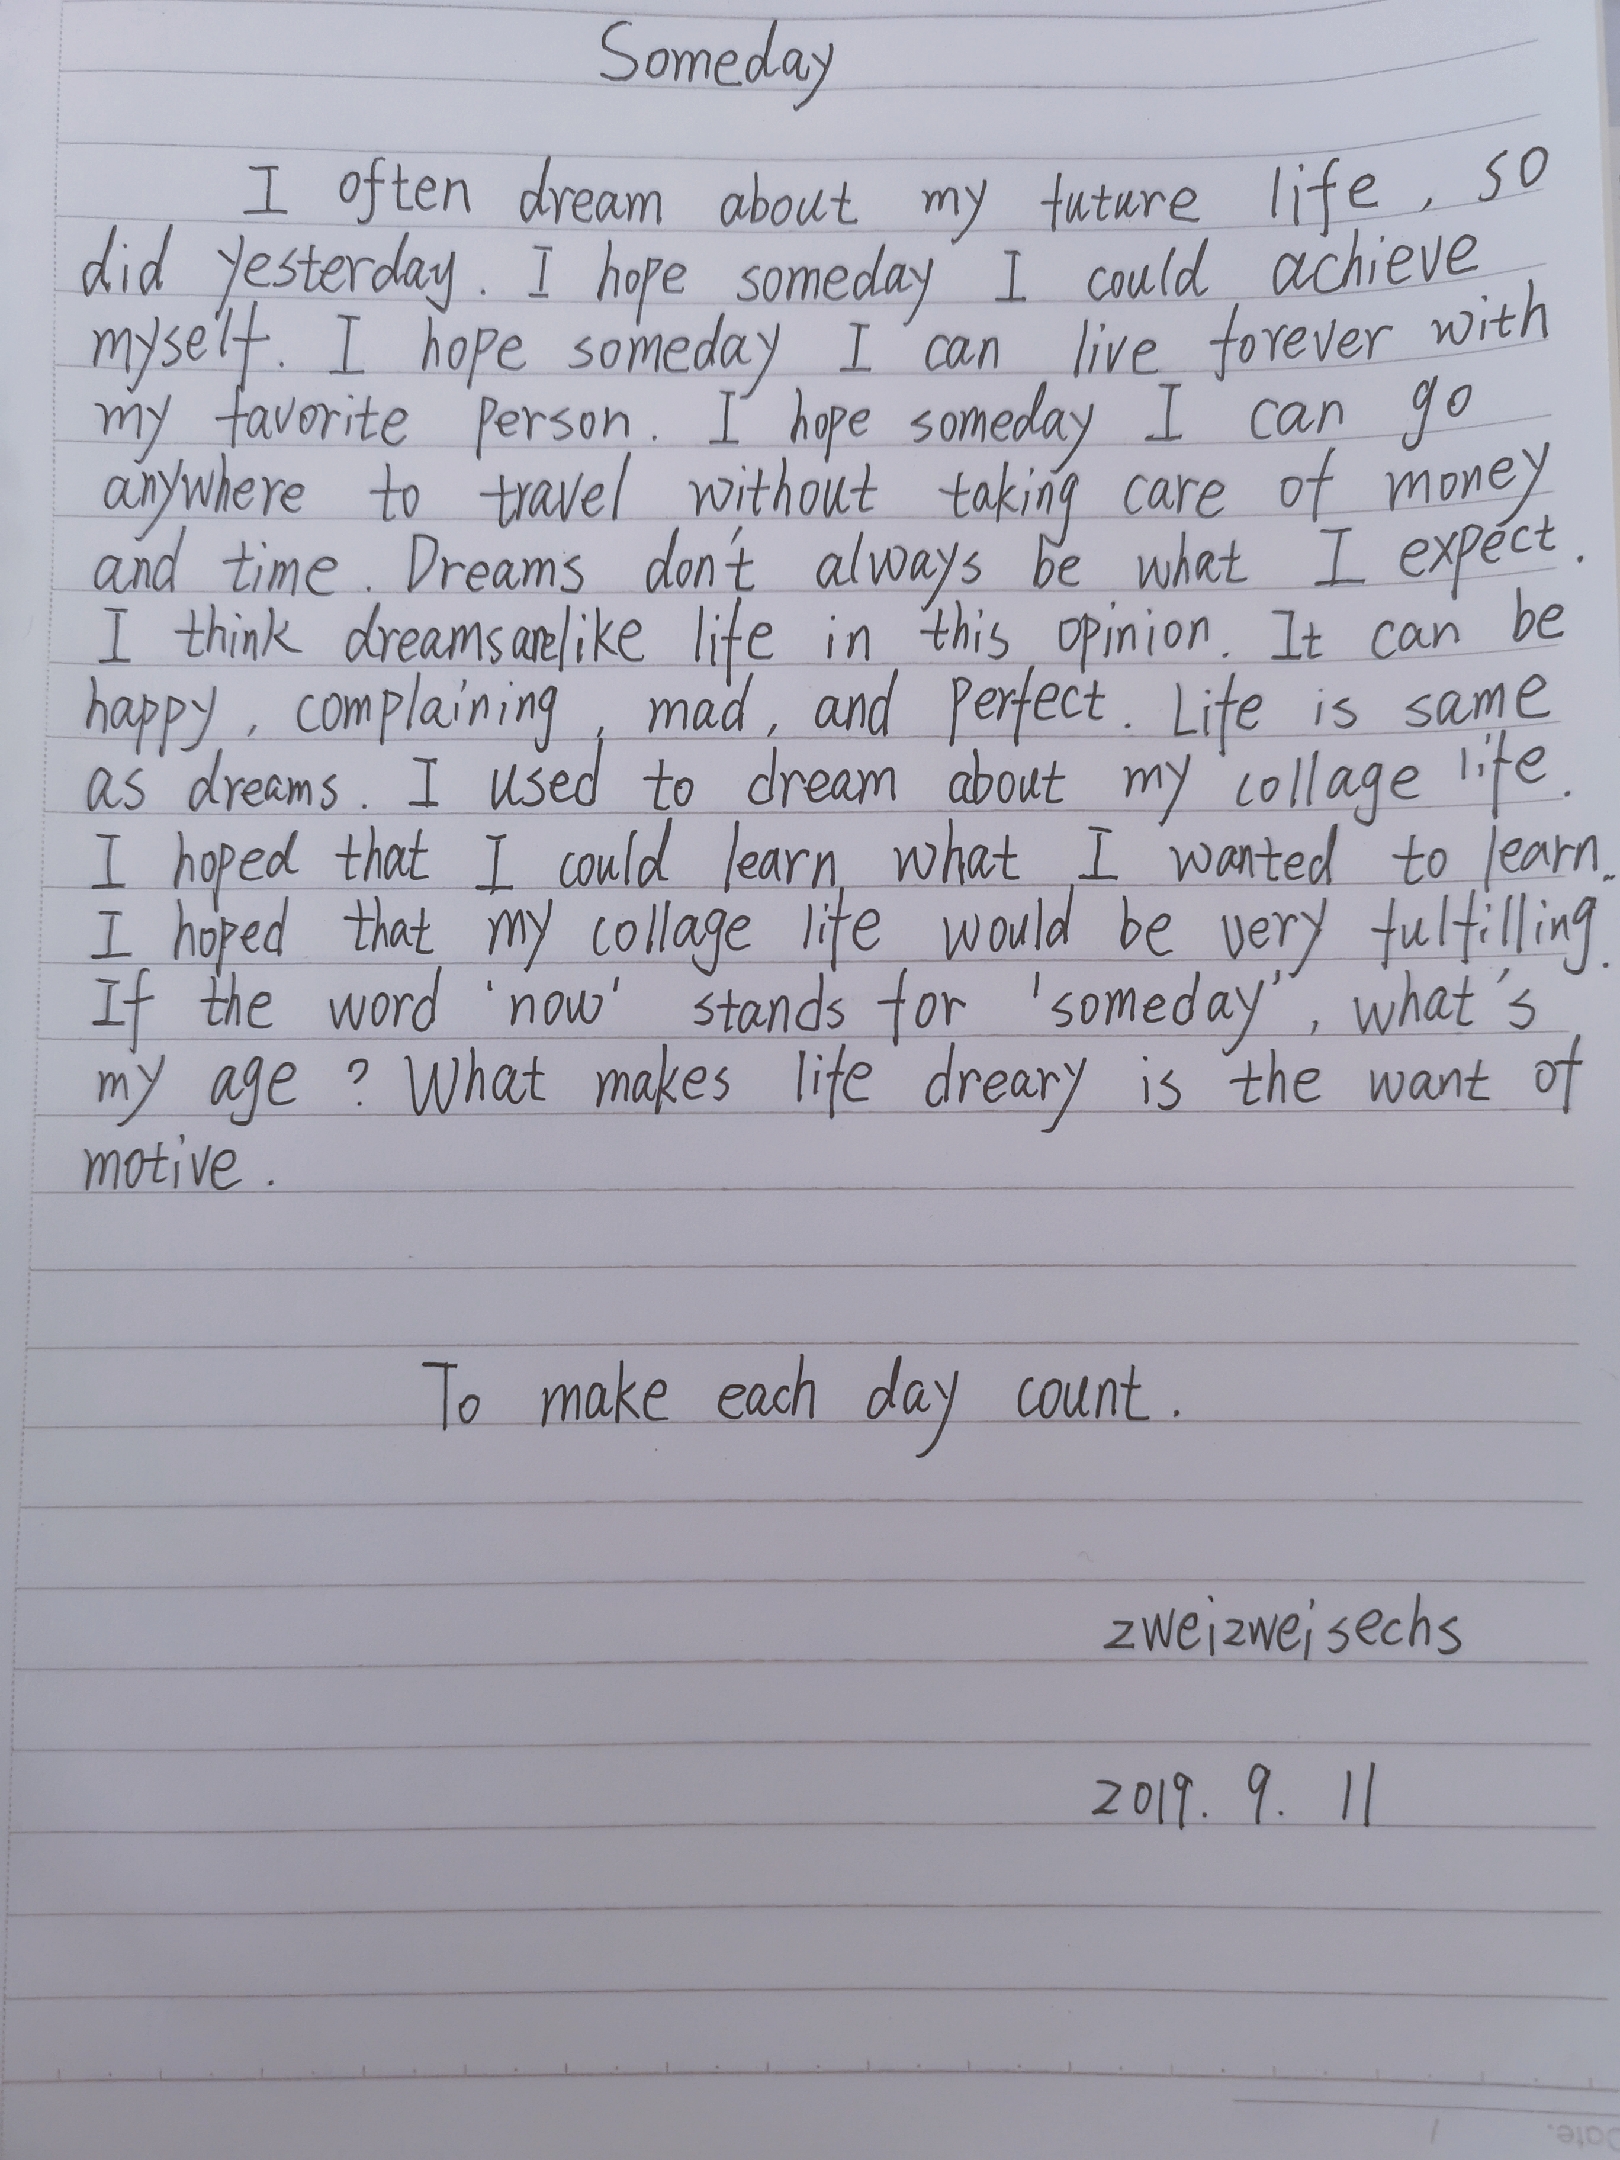 Someday
I often dream about my future life, so
did yesterday. I hope someday I could achieve
myself. I hope someday I can live forever with
my favorite person. I hope someday I can go
anywhere to travel without taking care of money
and time. Dreams don't always be what I expect.
I think dreams are like life in this opinion. It can be
happy, complaining, mad, and perfect. Life is same
as dreams. I used to dream about my collage life.
I hoped that I could learn what I wanted to learn.
I hoped that my collage life would be very fulfilling.
If the word 'now' stands for 'someday', what's
my age? What makes life dreary is the want of
motive.
To make each day count.
zweizweisechs
2019. 9. 11
Date.